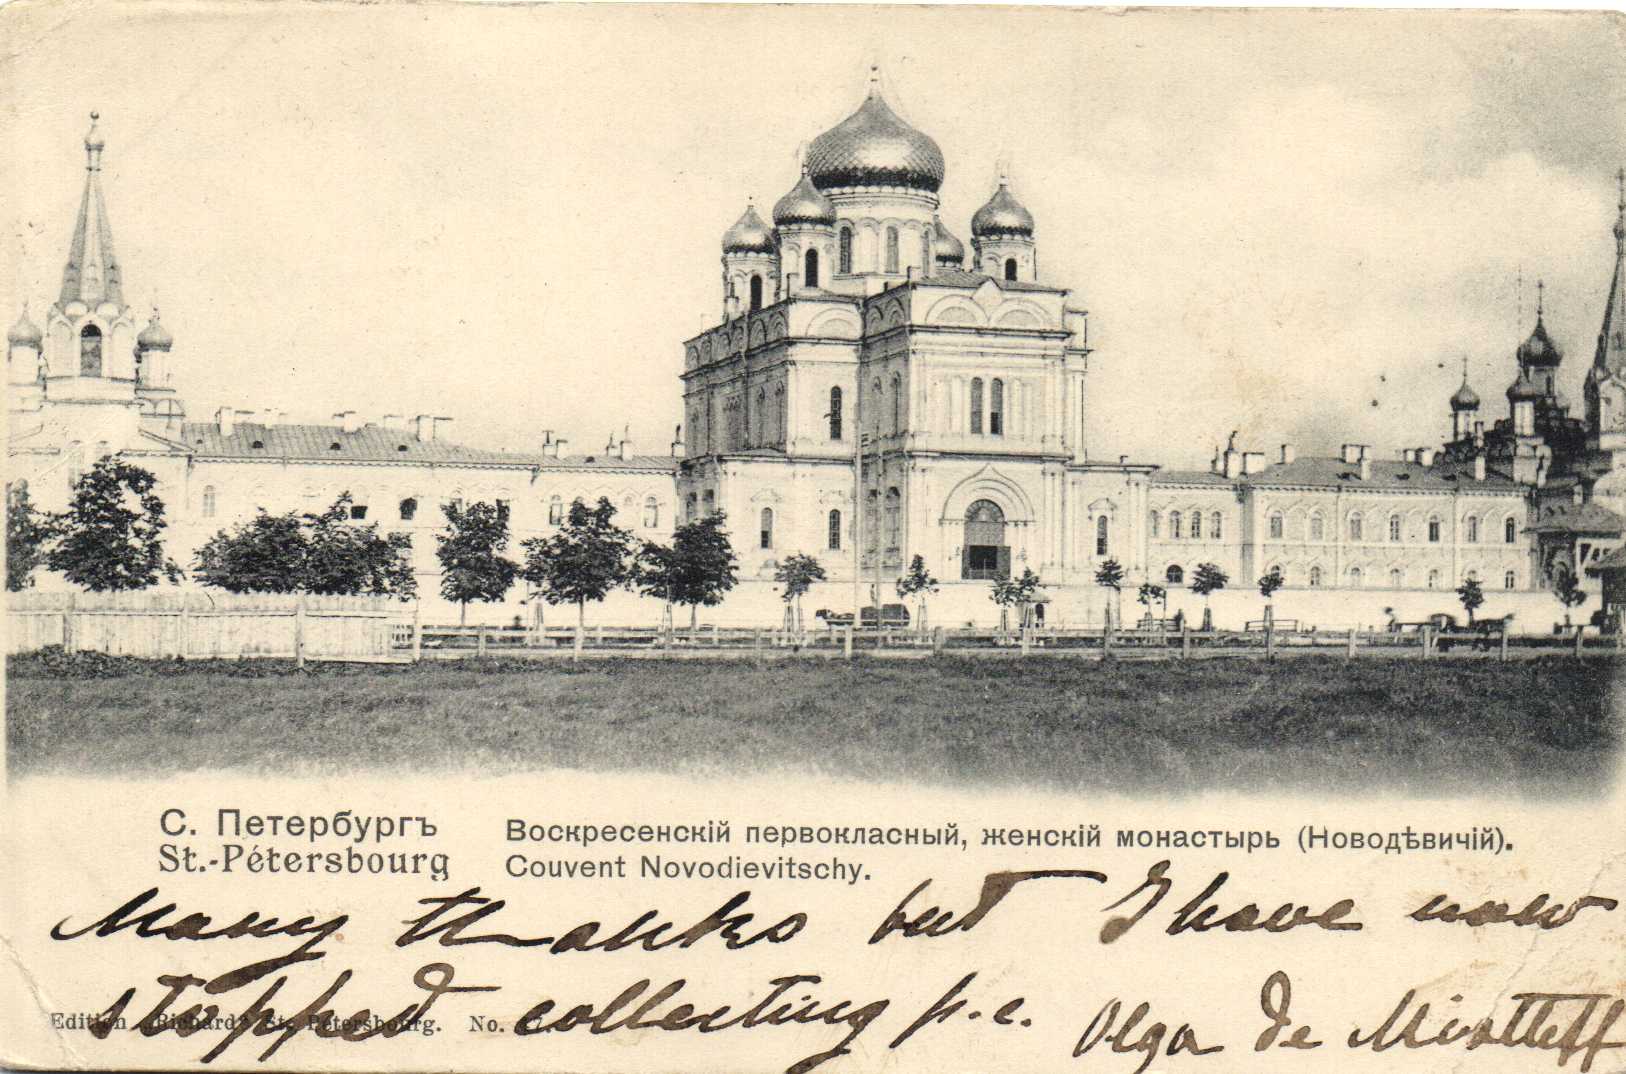 С. Петербургъ
St.-Pétersbourg
Воскресенскій первокласный, женскій монастырь (Новодѣвичій).
Couvent Novodievitschy.
Many thanks but I have now
stopped collecting p.c.
Olga de
Edition „Richard“ St. Pétersbourg. No.